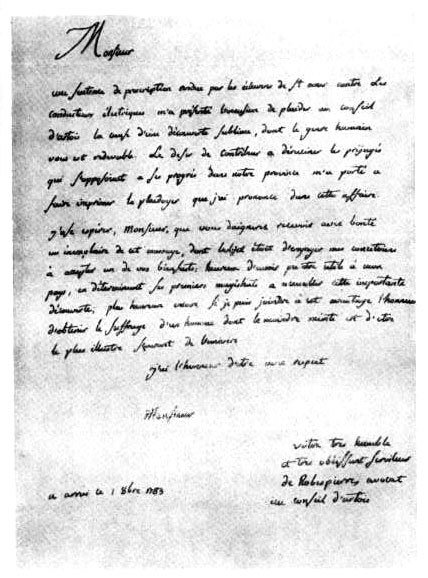 Monsieur
une sentence de proscription rendue par les échevins de st omer contre les
conducteurs électriques m'a présenté l'occasion de plaider au conseil
d'artois la cause d'une découverte sublime, dont le genre humain
vous est redevable. Le desir de contribuer a déraciner les préjugés
qui s'opposoient a ses progrès dans notre province m'a porté a
faire imprimer le plaidoyer que j'ai prononcé dans cette affaire.
j'ose espérer, Monsieur, que vous daignerez recevoir avec bonté
un exemplaire de cet ouvrage, dont l'objet étoit d'engager mes concitoiens
à accepter un de vos bienfaits; heureux d'avoir pu être utile à mon
pays, en déterminant ses premiers magistrats a accueillir cette importante
découverte; plus heureux encore si je puis joindre à cet avantage l'honneur
d'obtenir le suffrage d'un homme dont le moindre mérite est d'etre
le plus illustre sçavant de l'univers
j'ai l'honneur d'etre avec respect
Monsieur
votre très humble
et très obéissant serviteur
de Robespierre avocat
au conseil d'artois
a arras le 1 8bre 1783